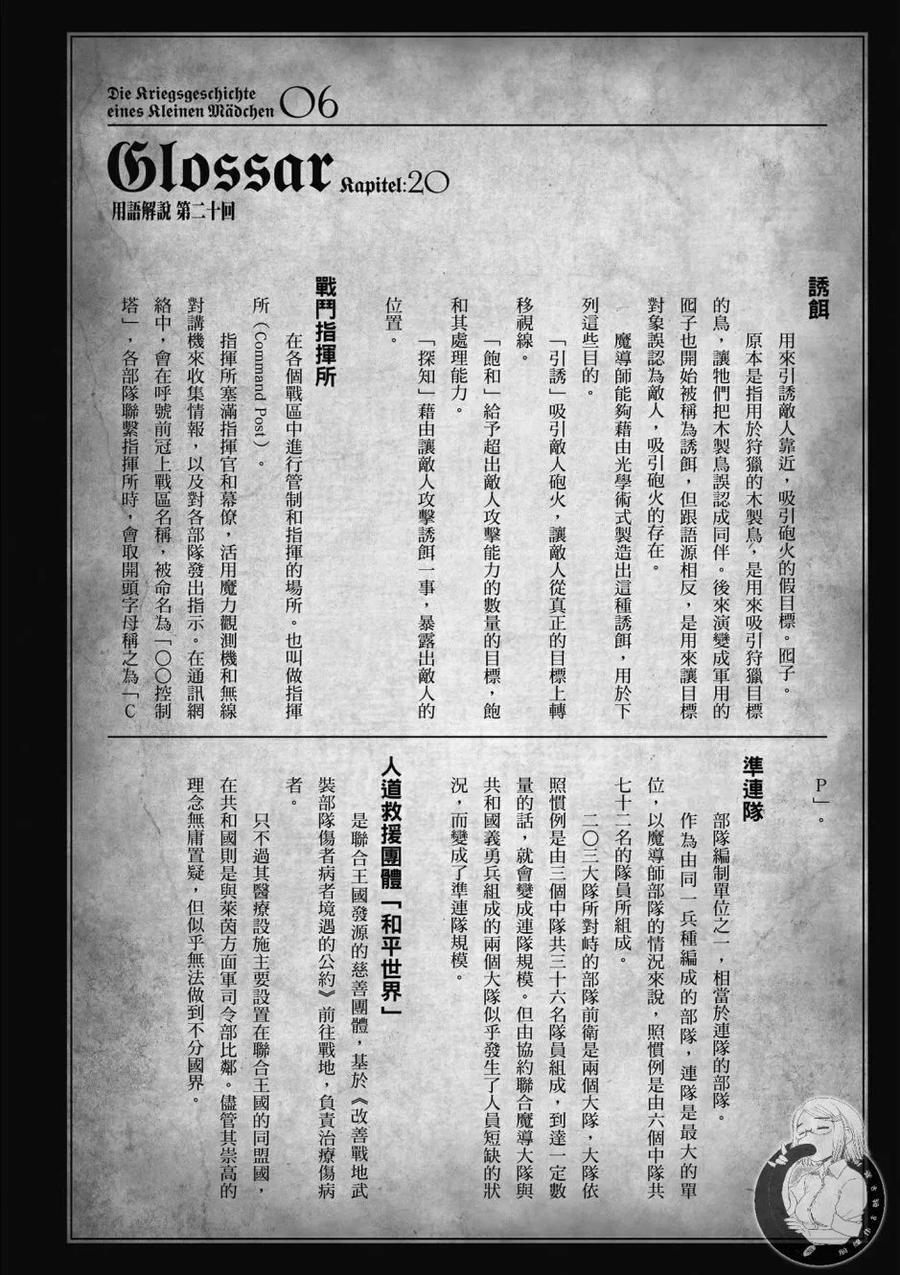 Die Kriegsgeschichte
eines Kleinen Mädchen 06
Glossar Kapitel:20
用語解說 第二十回
誘餌
用來引誘敵人靠近，吸引砲火的假目標。囮子。
原本是指用於狩獵的木製鳥，是用來吸引狩獵目標
的鳥，讓牠們把木製鳥誤認成同伴。後來演變成軍用的
囮子也開始被稱為誘餌，但跟語源相反，是用來讓目標
對象誤認為敵人，吸引砲火的存在。
魔導師能夠藉由光學術式製造出這種誘餌，用於下
列這些目的。
「引誘」吸引敵人砲火，讓敵人從真正的目標上轉
移視線。
「飽和」給予超出敵人攻擊能力的數量的目標，飽
和其處理能力。
「探知」藉由讓敵人攻擊誘餌一事，暴露出敵人的
位置。
戰鬥指揮所
在各個戰區中進行管制和指揮的場所。也叫做指揮
所（Command Post）。
指揮所塞滿指揮官和幕僚，活用魔力觀測機和無線
對講機來收集情報，以及對各部隊發出指示。在通訊網
絡中，會在呼號前冠上戰區名稱，被命名為「〇〇控制
塔」，各部隊聯繫指揮所時，會取開頭字母稱之為「C
P」。
準連隊
部隊編制單位之一，相當於連隊的部隊。
作為由同一兵種編成的部隊，連隊是最大的單
位，以魔導師部隊的情況來說，照慣例是由六個中隊共
七十二名的隊員所組成。
二〇三大隊所對峙的部隊前衛是兩個大隊，大隊依
照慣例是由三個中隊共三十六名隊員組成，到達一定數
量的話，就會變成連隊規模。但由協約聯合魔導大隊與
共和國義勇兵組成的兩個大隊似乎發生了人員短缺的狀
況，而變成了準連隊規模。
人道救援團體「和平世界」
是聯合王國發源的慈善團體，基於《改善戰地武
裝部隊傷者病者境遇的公約》前往戰地，負責治療傷病
者。
只不過其醫療設施主要設置在聯合王國的同盟國，
在共和國則是與萊茵方面軍司令部比鄰。儘管其崇高的
理念無庸置疑，但似乎無法做到不分國界。